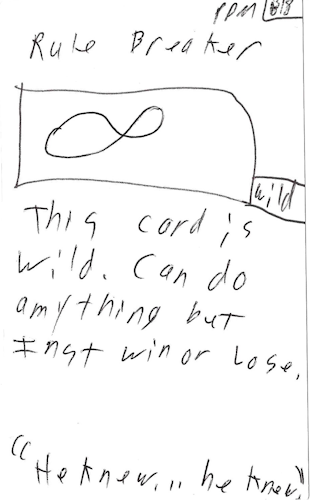 PPM
Rule Breaker
Wild
This card is
Wild. Can do
anything but
Inst win or Lose.
"He knew... he knew."